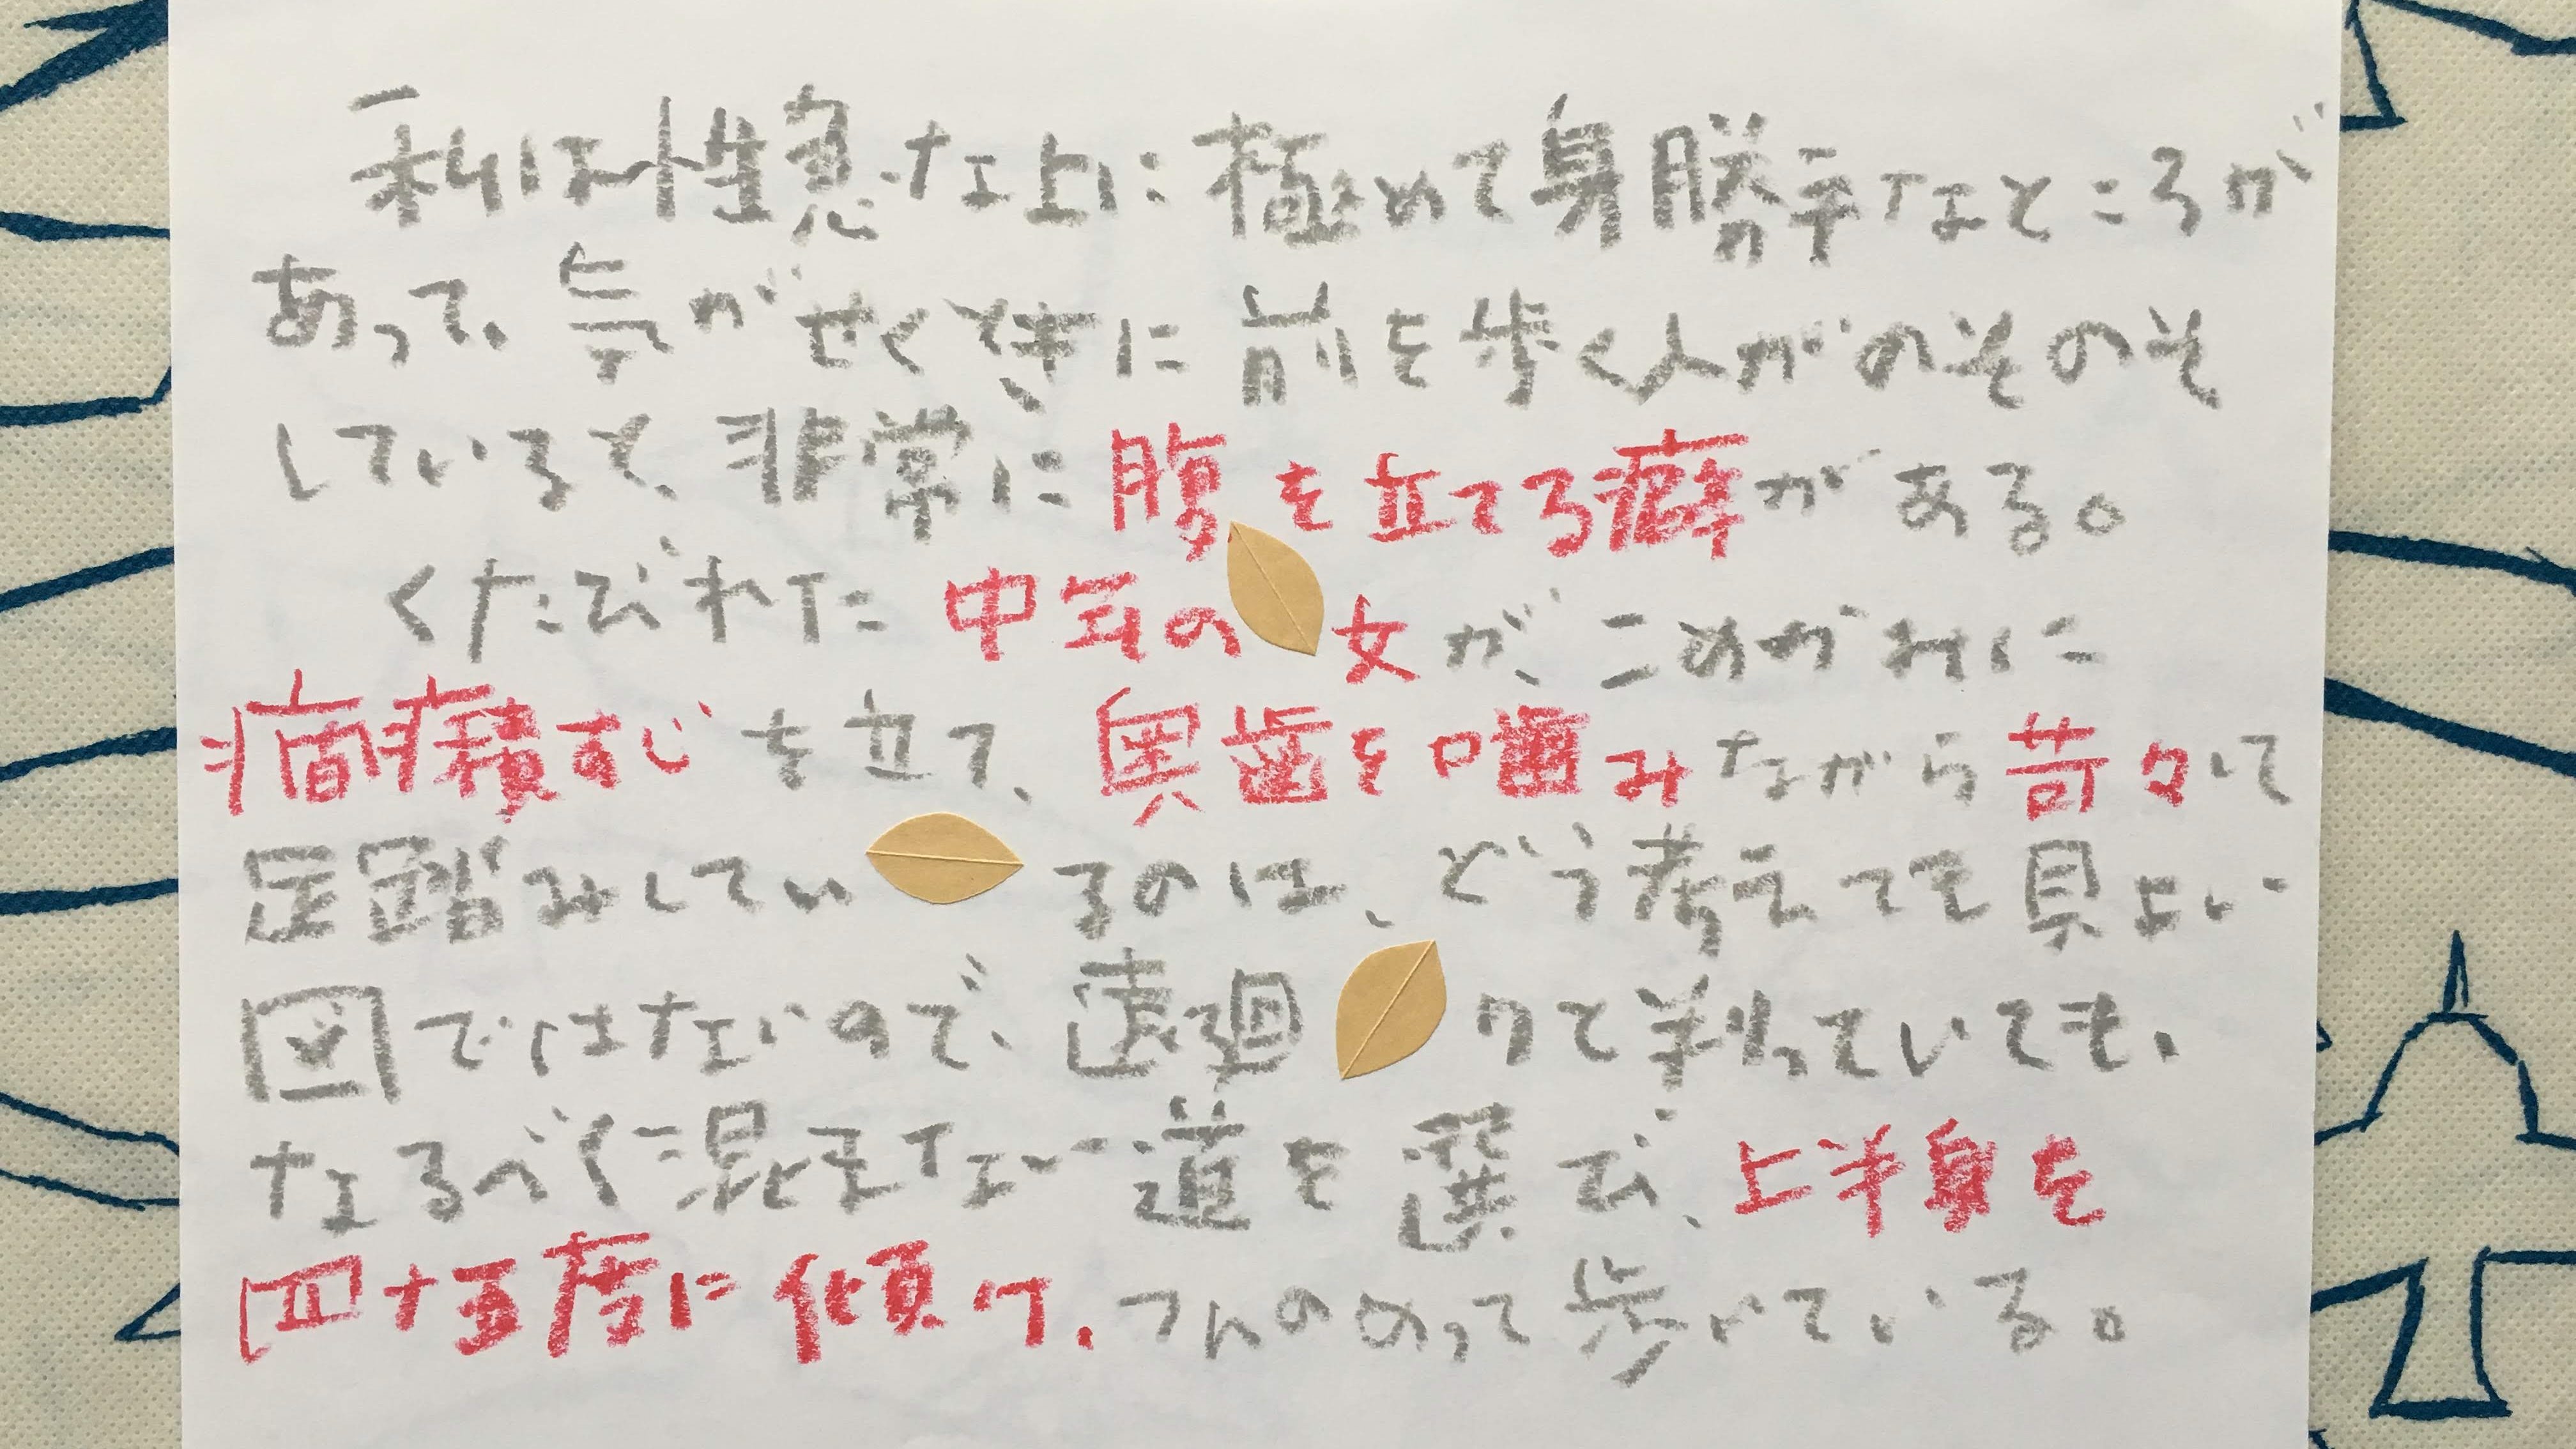 私は性急な上に極めて身勝手なところが
あって、気がせくときに前を歩く人がのそのそ
していると、非常に腹を立てる癖がある。
くたびれた中年の女が、こめかみに
癇癪すじを立て、奥歯を噛みながら苛々して
足踏みしているのは、どう考えても見よい
図ではないので、遠廻りと判っていても、
なるべく混まない道を選び、上半身を
四十五度に傾け、つんのめって歩いている。